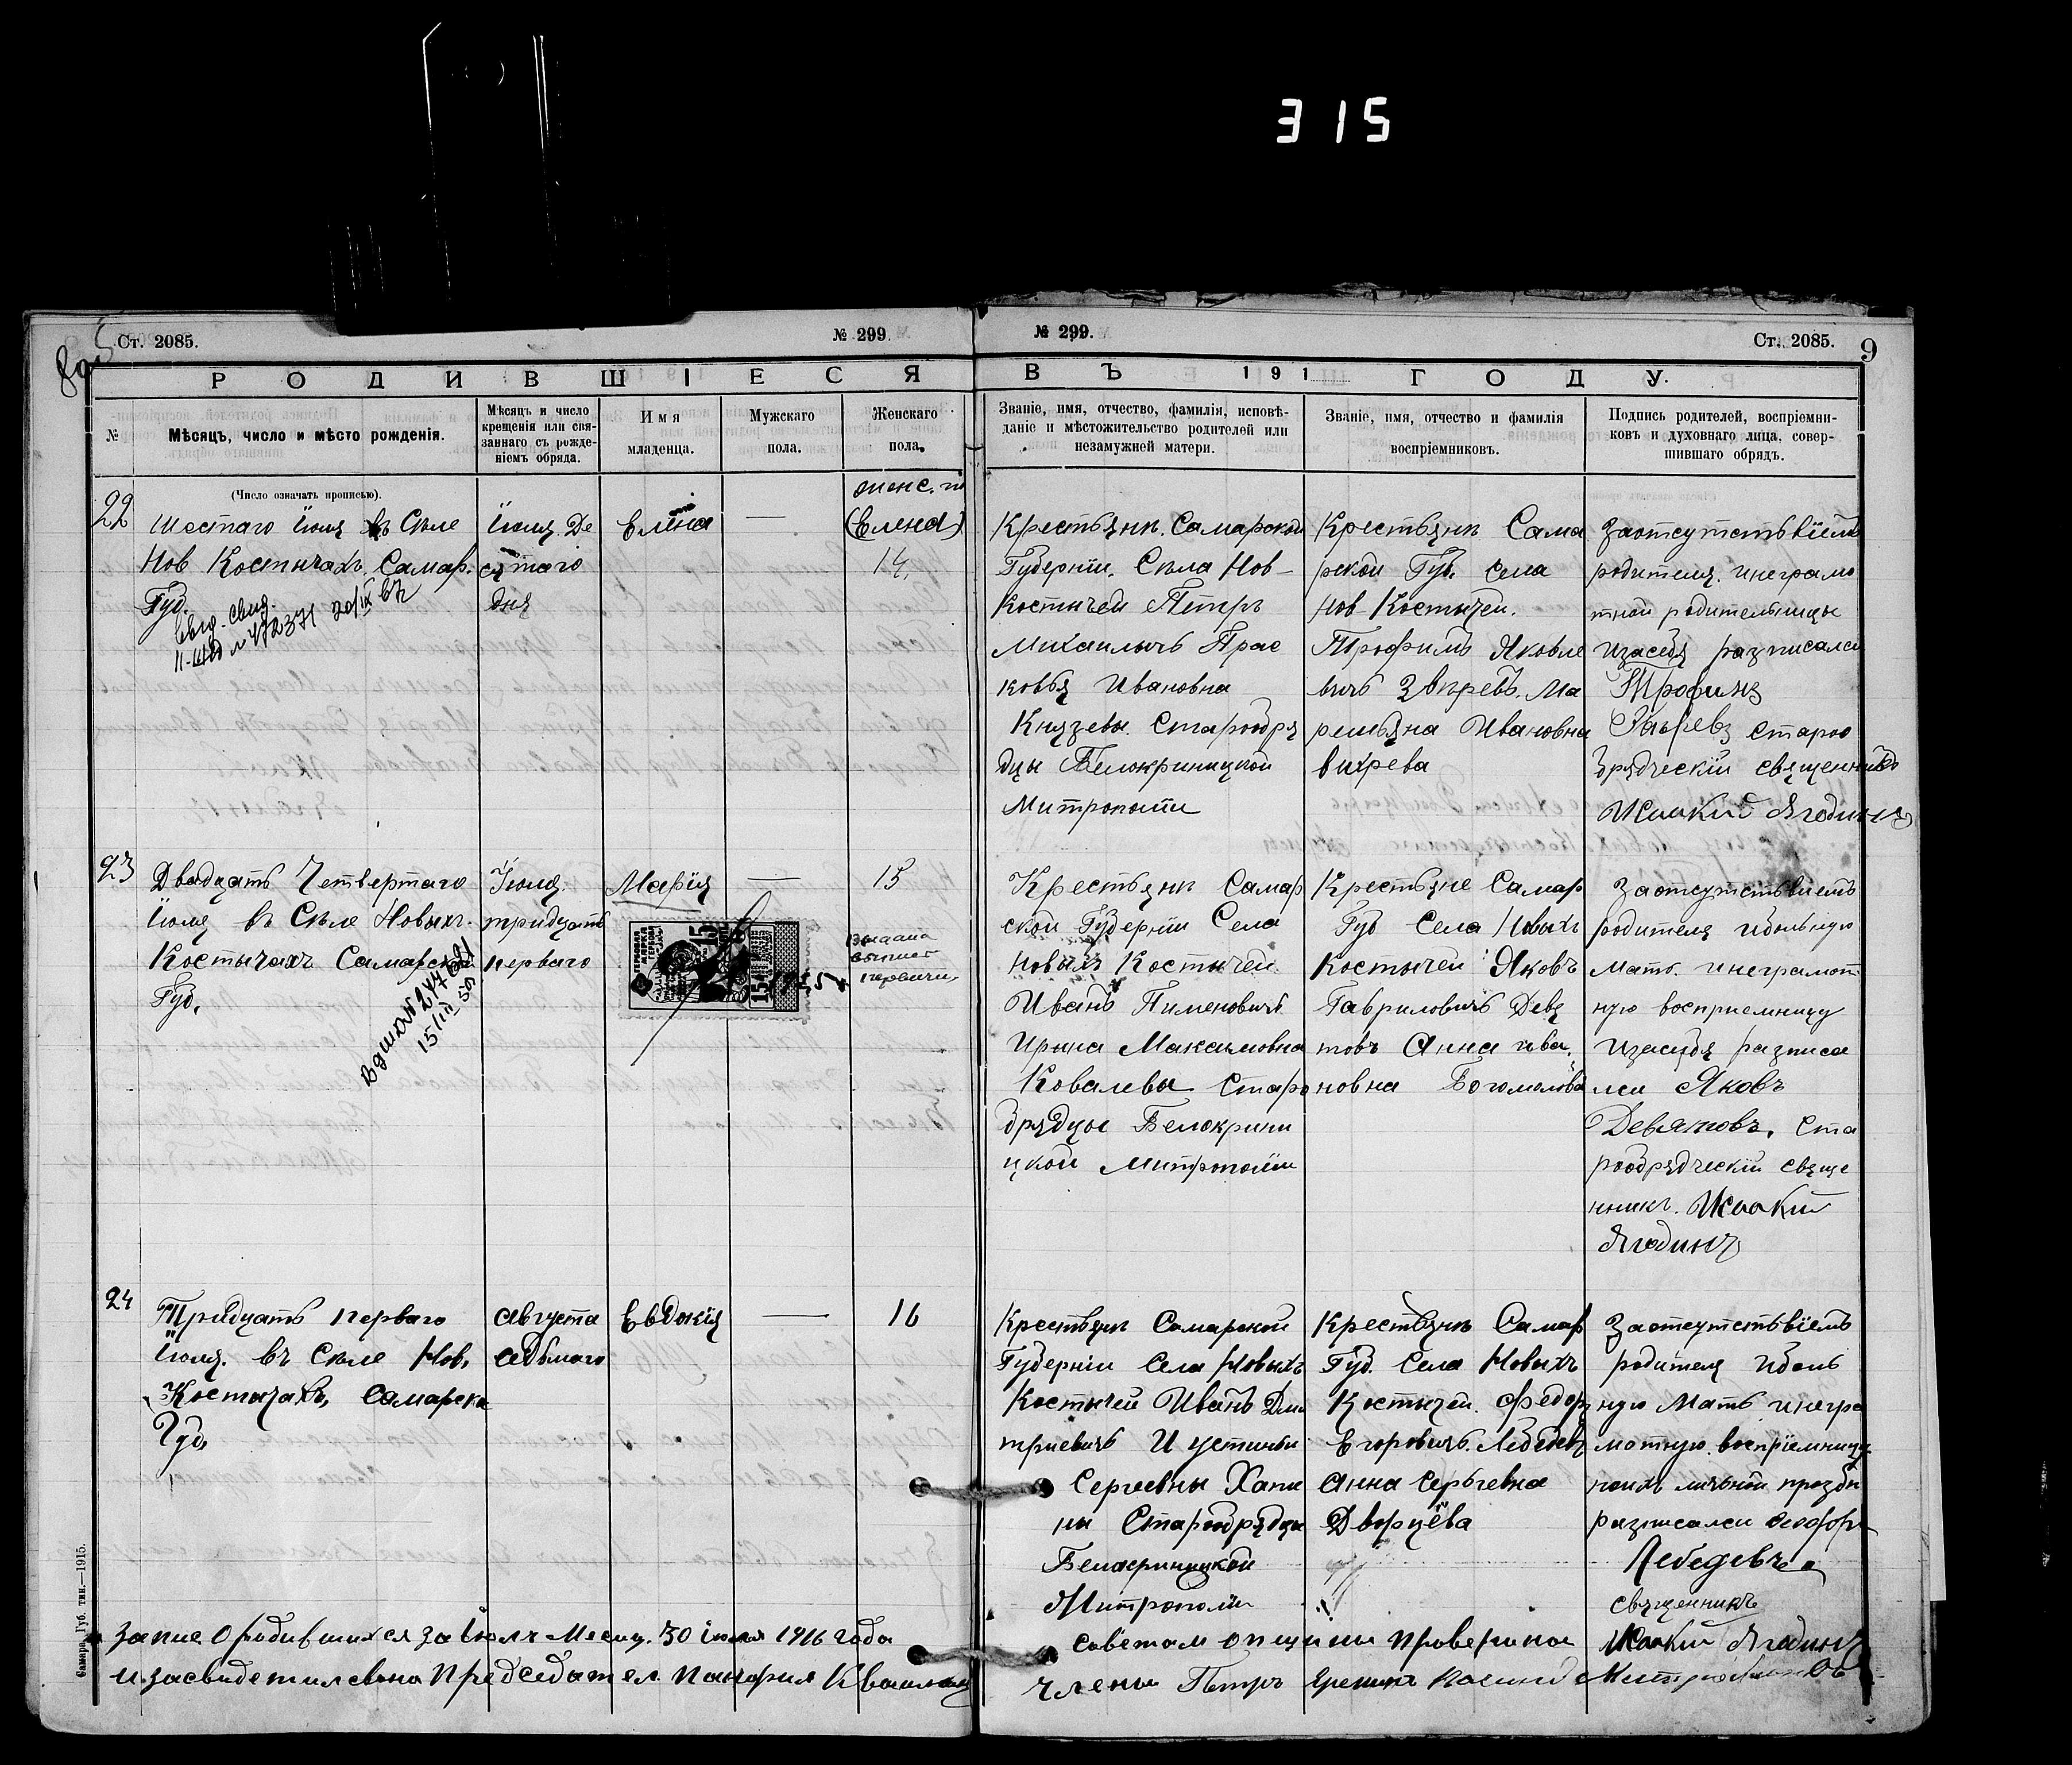 315
Ст. 2085.
№ 299.
№ 299.
Ст. 2085.
9
РОДИВШІЕСЯ
ВЪ 191 ГОДУ.
№
Мѣсяцъ, число и мѣсто рожденія.
Мѣсяцъ и число крещенія или свя-
заннаго съ рожде-
ніемъ обряда.
Имя
младенца.
Мужскаго
пола.
Женскаго
пола.
Званіе, имя, отчество, фамилія, исповѣ-
даніе и мѣстожительство родителей или
незамужней матери.
Званіе, имя, отчество и фамилія
воспріемниковъ.
Подпись родителей, воспріемни-
ковъ и духовнаго лица, совер-
шившаго обрядъ.
(Число означать прописью).
22
Шестаго Іюля въ Селе
Нов Костычахъ, Самар.
Губ.
Іюля. Де
сятаго
дня
Елена
—
(Елена)
14.
Крестьяни. Самарской
Губерніи. Села Нов-
Костычей Петръ
Михаилычъ Прас
ковья Ивановна
Князевы. Старообря
дцы Белокриницкой
Митрополи
Крестьяни Сама
рской Губ. Села
Нов-Костычей.
Трофимъ Яковле
вичъ Звиревъ. Ма
ремьяна Ивановна
вихрева
Заотсутствіемъ
родителя. инеграмо
тной родительницы
изасебя разписался
Трофимъ
старооо
брядческій священникъ
Ягодинъ
23
Двадцать Четвертаго
Іюля въ Селе Новыхъ.
Костычахъ Самарской
Губ.
Іюля.
тридцать
перваго
Марія
—
15
Крестьяни Самар
ской Губерніи Села
Новыхъ Костычей.
Иванъ Пименовичъ
Ирина Максимовна
Ковалевы Старо
брядцы Белокрини
цкой Митрополіи
Крестьяне Самар
Губ Села Новыхъ
Костычей Яковъ
Гавриловичъ Девя
товъ Анна ива.
новна Богомолова
Заотсутствіемъ
родителя ибольную
Мать. инеграмот
ную восприемницу
изасебя разписа
лси Яковъ
Девятовъ. Ста
рообрядческій свяще
нникъ.
Ягодинъ
24
Тридцать перваго
Іюля. въ Селе Нов,
Костычахъ, Самарско
Губ.
Августа
седьмаго
Евдокія
—
16
Крестьяни Самарской
Губерніи Села Новыхъ
Костычей Иванъ Дми
триевичъ И устиньи
Сергеевны Хапи
ны Старообрядцы
Белакриницкой
Митрополи
Крестьяни Самар
Губ. Села Новыхъ
Костычей. Федоръ
Егоровичъ. Лебедевъ
Анна Серьгевна
Дворцёва
Заотсутствіемъ
родителя иболь
ную Мать инегра
мотную. воспріемницу
поихъ личной прозби
разписался
Лебедевъ
священникъ
Ягодинъ
Запис О родившихся за Іюлъ Месяц. 30 июля 1916 года
советам опщини проверина
и засвидетилсвона Председател Панфил
члены Петръ
Самара, Губ. тип.—1915.